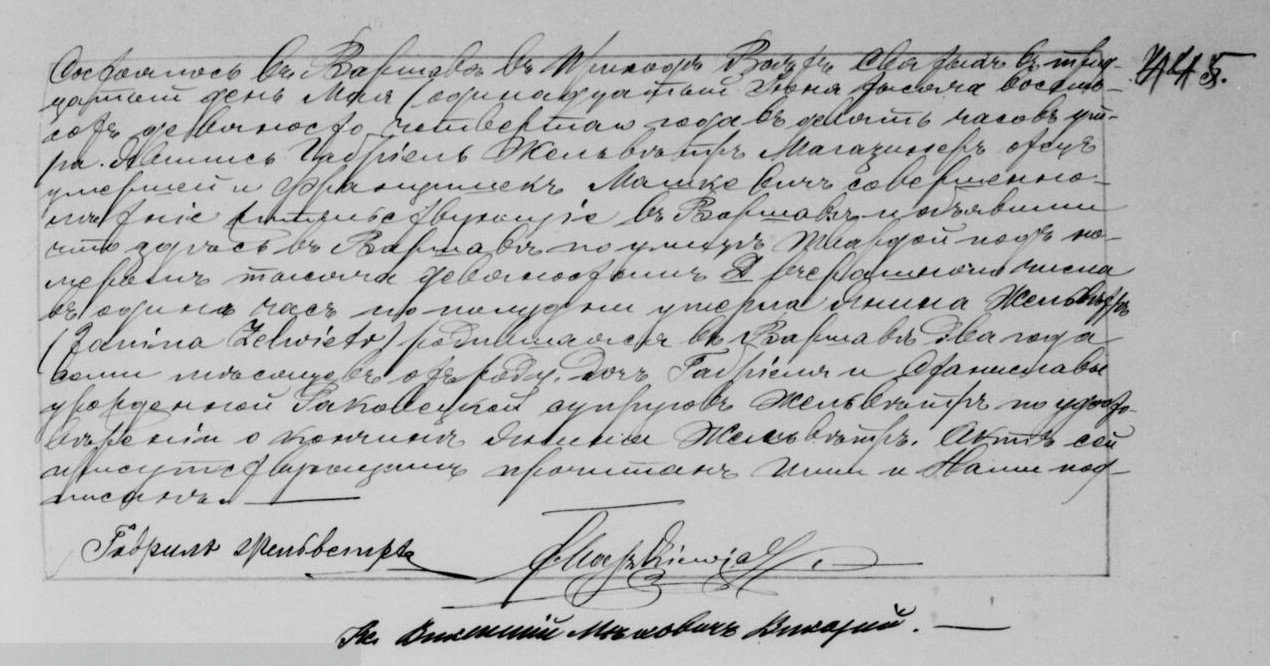 Состоялось въ Варшавѣ въ Приходѣ Всѣхъ Святыхъ въ трид- 445.
цатый день Мая (одинадцатый Іюня тысяча восемь-
сотъ девяносто четвертаго года въ девять часовъ ут-
ра. Явились Габріель Жельвѣтръ Магазинеръ отецъ
умершей и Францишекъ Машкевичъ совершенно-
лѣтніе жительствующіе въ Варшавѣ и объявили
что здѣсь въ Варшавѣ по улицѣ Твардой подъ но-
меромъ тысяча девяностымъ Д вчерашняго числа
въ одинъ часъ по полудни умерла Янина Жельвѣтръ
(Janina Żelwietr) родившаяся въ Варшавѣ два года
семи мѣсяцевъ отъ роду, дочь Габріеля и Станиславы
урожденной Раковецкой супруговъ Жельвѣтръ по удосто-
вѣреніи о кончинѣ Янины Жельвѣтръ. Актъ сей
присутствующимъ прочитанъ Ими и Нами под-
писанъ.
Габріель Жельветръ F. Maszkiewicz
Кс. Мѣшковичъ Викарій.